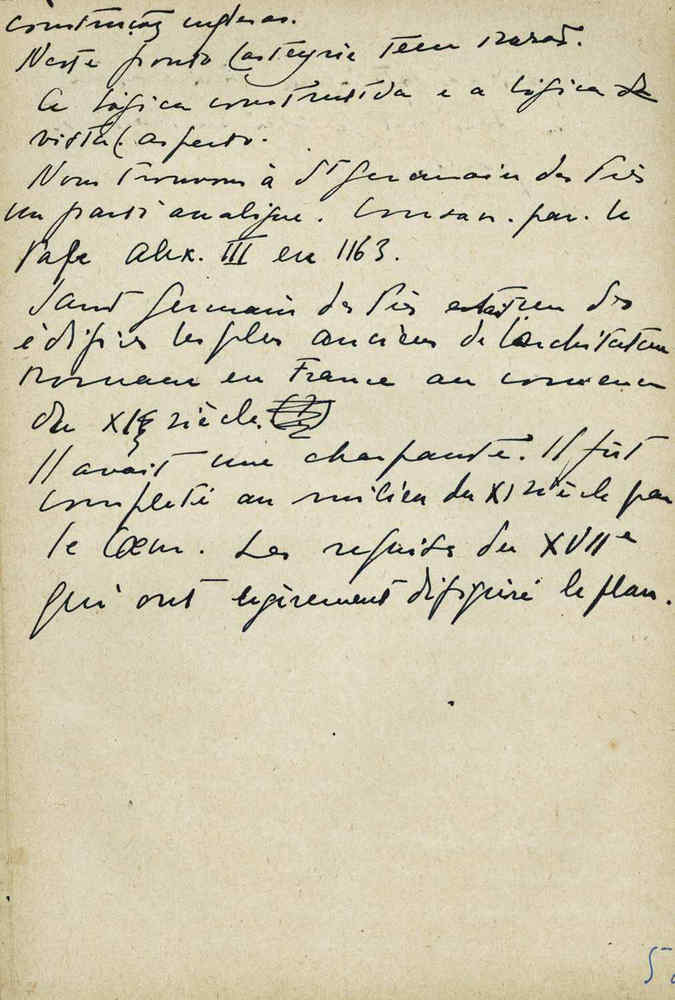 construções inglesas.
Neste ponto Lasteyrie teem razão.
A lógica construtida e a lógica da
vista (aspecto.
Nous trouvons à St Germain des Près
un parti analigue. Consac. par. le
Pape Alex. III en 1163.
Saint Germain des Près est un des
édifices les plus anciens de l'architecture
romane en France au commenc
du XIe siècle.
Il avait une charpante. Il fut
completé au milieu du XI siècle par
le Cœur. Les refaits du XVIIe
qui ont legèrement difiguré le plan.
5